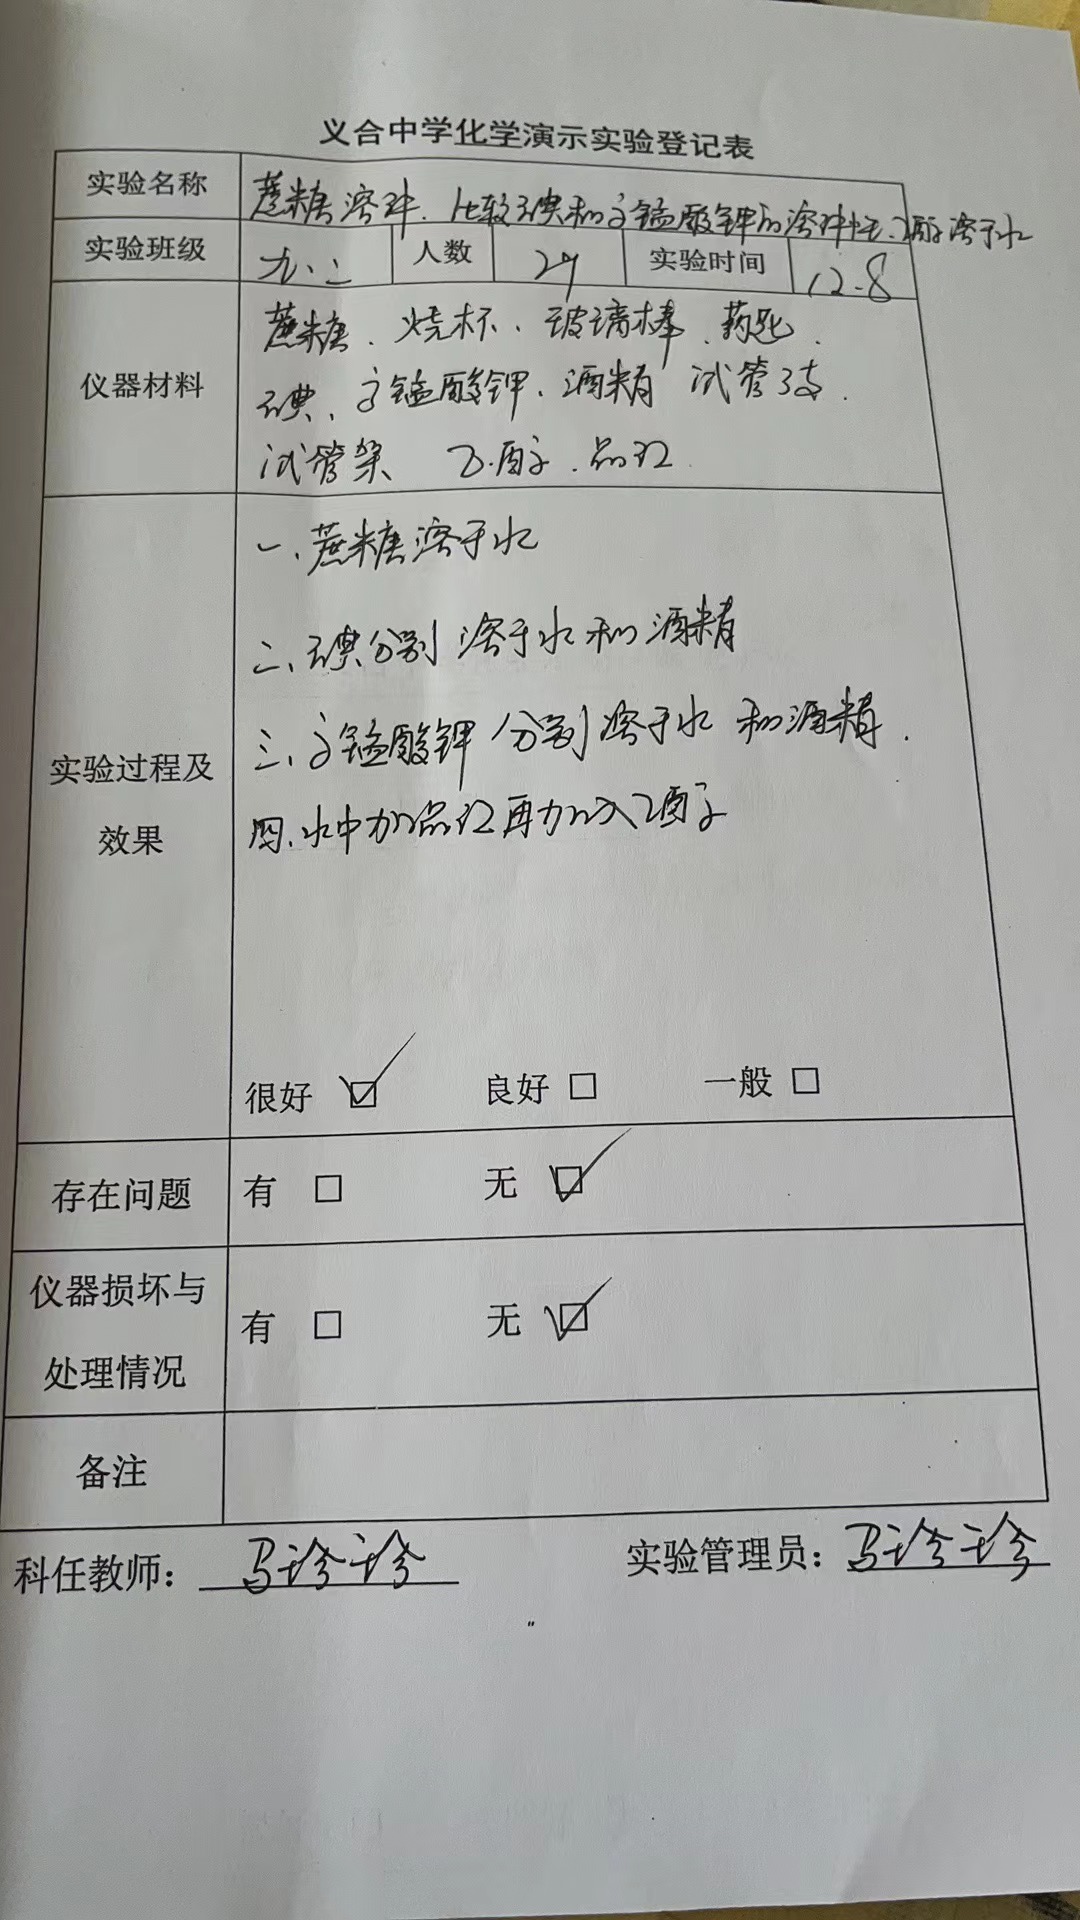 义合中学化学演示实验登记表
实验名称 蔗糖溶解、比较碘和高锰酸钾的溶解性、乙醇溶于水
实验班级 九.二 人数 29 实验时间 12.8
仪器材料
蔗糖、烧杯、玻璃棒、药匙、
碘、高锰酸钾、酒精 试管3支、
试管架 乙醇、品红
实验过程及
效果
一、蔗糖溶于水
二、碘分别溶于水和酒精
三、高锰酸钾分别溶于水和酒精.
四、水中加品红再加入乙醇
很好 ☑ 良好 □ 一般 □
存在问题 有 □ 无 ☑
仪器损坏与
处理情况
有 □ 无 ☑
备注
科任教师：马珍珍 实验管理员：马珍珍